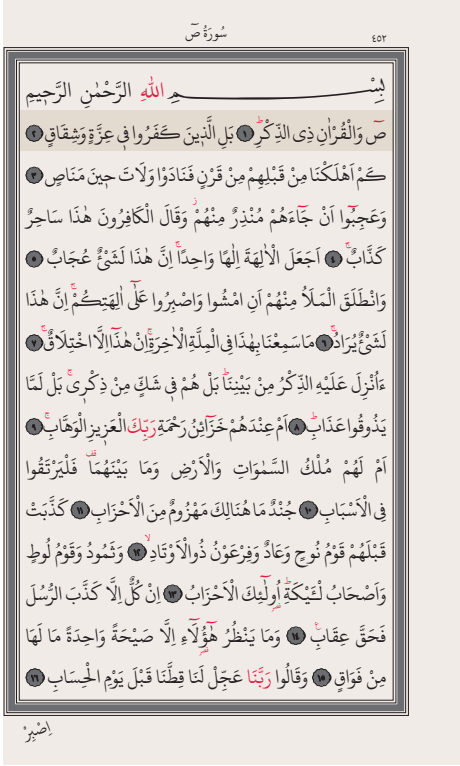 ٤٥٢
سُورَةُ صٓ
بِسْــــــــــمِ اللّٰهِ الرَّحْمٰنِ الرَّح۪يمِ
صٓ وَالْقُرْاٰنِ ذِي الذِّكْرِۜ ﴿١﴾ بَلِ الَّذ۪ينَ كَفَرُوا ف۪ي عِزَّةٍ وَشِقَاقٍ ﴿٢﴾
كَمْ اَهْلَكْنَا مِنْ قَبْلِهِمْ مِنْ قَرْنٍ فَنَادَوْا وَلَاتَ ح۪ينَ مَنَاصٍ ﴿٣﴾
وَعَجِبُٓوا اَنْ جَٓاءَهُمْ مُنْذِرٌ مِنْهُمْۘ وَقَالَ الْكَافِرُونَ هٰذَا سَاحِرٌ
كَذَّابٌۚ ﴿٤﴾ اَجَعَلَ الْاٰلِهَةَ اِلٰهًا وَاحِدًاۚ اِنَّ هٰذَا لَشَيْءٌ عُجَابٌ ﴿٥﴾
وَانْطَلَقَ الْمَلَاُ مِنْهُمْ اَنِ امْشُوا وَاصْبِرُوا عَلٰٓى اٰلِهَتِكُمْۚ اِنَّ هٰذَا
لَشَيْءٌ يُرَادُۚ ﴿٦﴾ مَا سَمِعْنَا بِهٰذَا فِي الْمِلَّةِ الْاٰخِرَةِۚ اِنْ هٰذَٓا اِلَّا اخْتِلَاقٌۚ ﴿٧﴾
ءَاُنْزِلَ عَلَيْهِ الذِّكْرُ مِنْ بَيْنِنَاۜ بَلْ هُمْ ف۪ي شَكٍّ مِنْ ذِكْر۪يۚ بَلْ لَمَّا
يَذُوقُوا عَذَابِۜ ﴿٨﴾ اَمْ عِنْدَهُمْ خَزَٓائِنُ رَحْمَةِ رَبِّكَ الْعَز۪يزِ الْوَهَّابِۚ ﴿٩﴾
اَمْ لَهُمْ مُلْكُ السَّمٰوَاتِ وَالْاَرْضِ وَمَا بَيْنَهُمَا۠ فَلْيَرْتَقُوا
فِي الْاَسْبَابِ ﴿١٠﴾ جُنْدٌ مَا هُنَالِكَ مَهْزُومٌ مِنَ الْاَحْزَابِ ﴿١١﴾ كَذَّبَتْ
قَبْلَهُمْ قَوْمُ نُوحٍ وَعَادٌ وَفِرْعَوْنُ ذُو الْاَوْتَادِۙ ﴿١٢﴾ وَثَمُودُ وَقَوْمُ لُوطٍ
وَاَصْحَابُ لْـَٔيْكَةِۜ اُو۬لٰٓئِكَ الْاَحْزَابُ ﴿١٣﴾ اِنْ كُلٌّ اِلَّا كَذَّبَ الرُّسُلَ
فَحَقَّ عِقَابِ۟ ﴿١٤﴾ وَمَا يَنْظُرُ هٰٓؤُ۬لَٓاءِ اِلَّا صَيْحَةً وَاحِدَةً مَا لَهَا
مِنْ فَوَاقٍ ﴿١٥﴾ وَقَالُوا رَبَّنَا عَجِّلْ لَنَا قِطَّنَا قَبْلَ يَوْمِ الْحِسَابِ ﴿١٦﴾
اِصْبِرْ